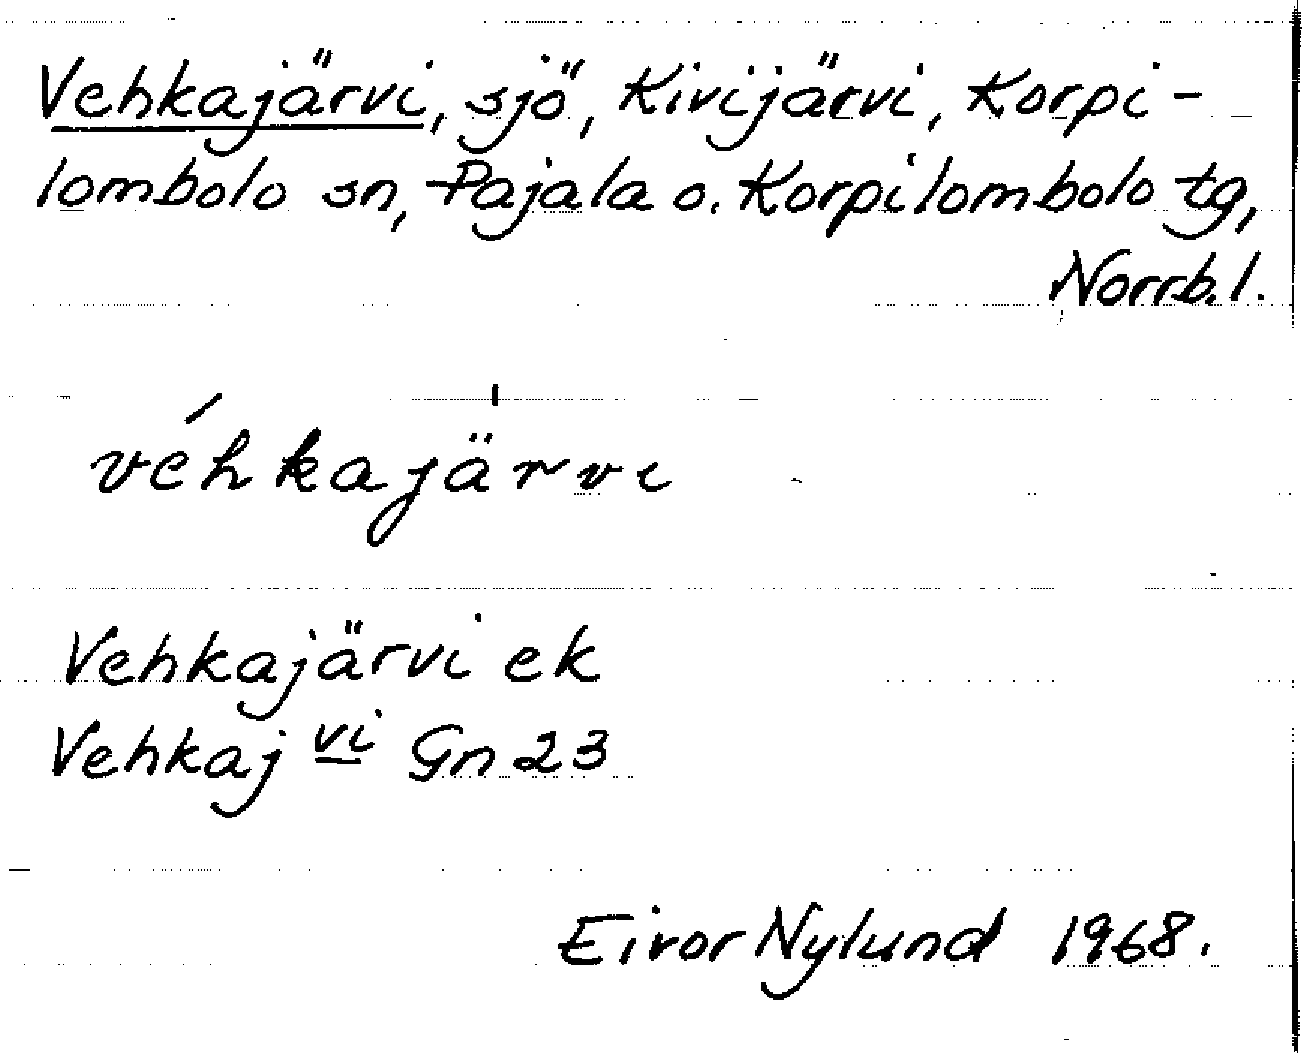 Vehkajärvi, sjö, Kivijärvi, Korpi-
lombolo sn, Pajala o. Korpilombolo tg,
Norrb. l.
véhkajärvi
Vehkajärvi ek
Vehkaj vi Gn 23
Eivor Nylund 1968.